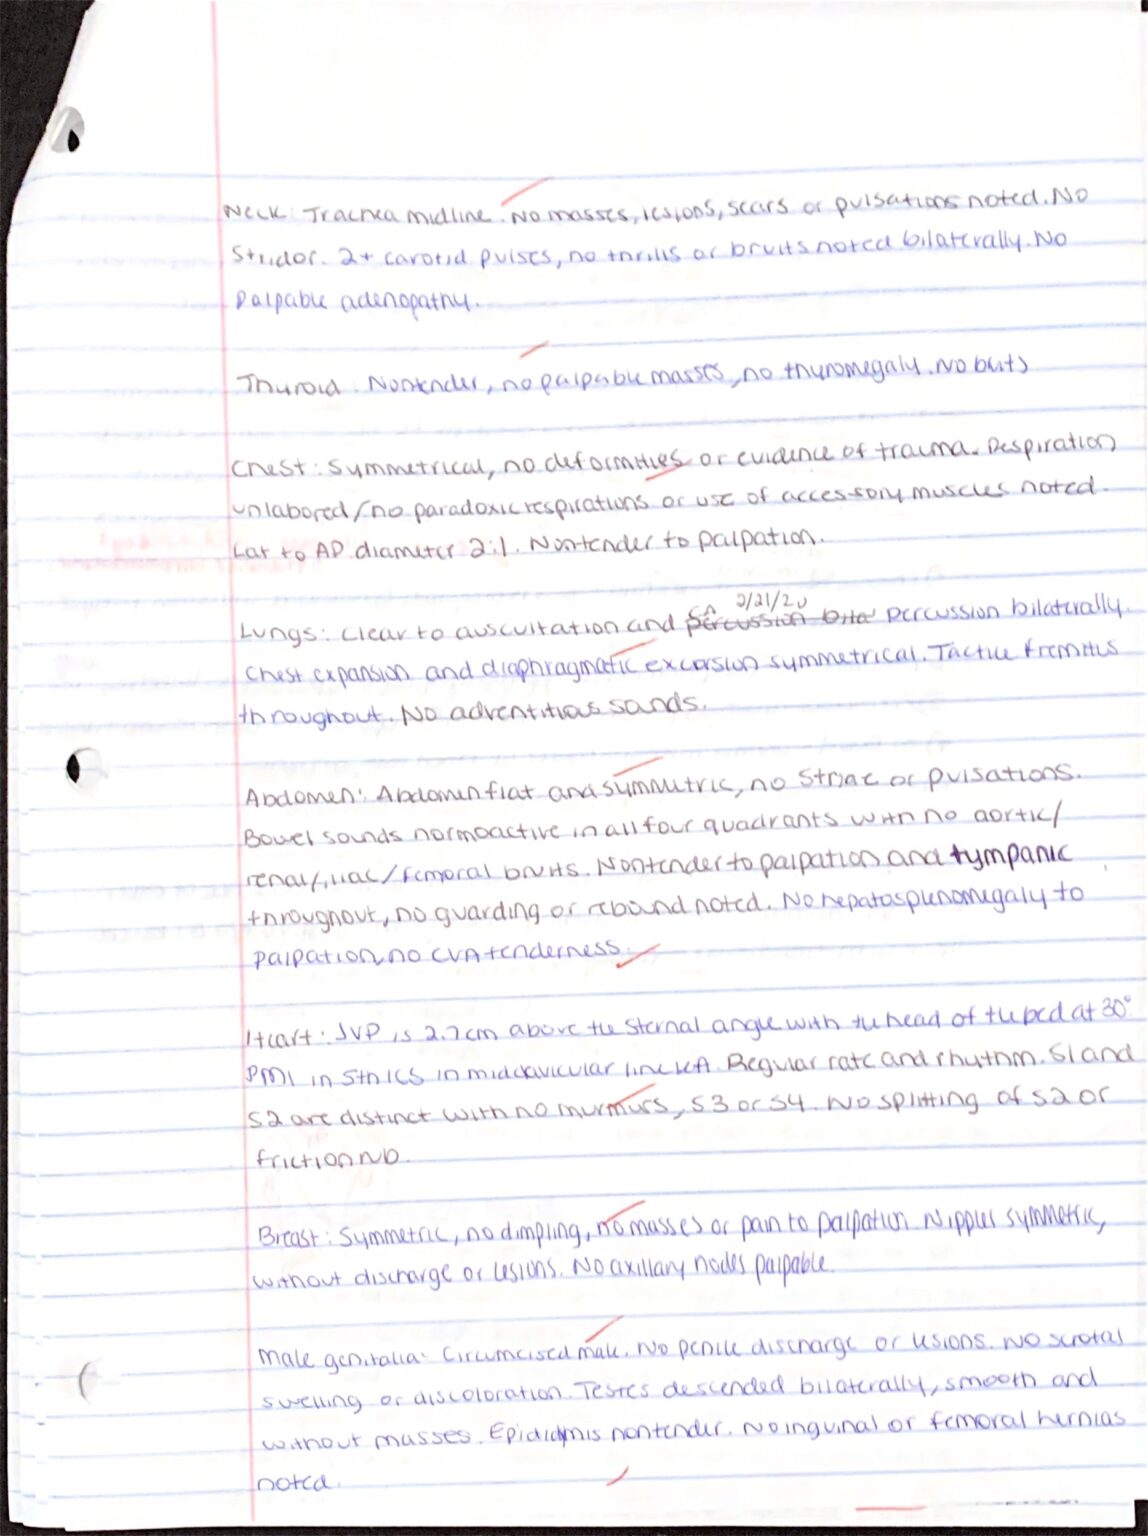 Neck: Trachea midline. No masses, lesions, scars or pulsations noted. No
Stridor. 2+ carotid pulses, no thrills or bruits noted bilaterally. No
palpable adenopathy.
Thyroid. Nontender, no palpable masses, no thyromegaly. No buits
Chest: Symmetrical, no deformities or evidence of trauma. Respiration
unlabored/no paradoxic respirations or use of accessory muscles noted.
Lat to AP diameter 2:1. Nontender to palpation.
CA 2/21/20
Lungs: Clear to auscultation and percussion bila percussion bilaterally.
Chest expansion and diaphragmatic excursion symmetrical. Tactile fremitus
throughout. No adventitious sounds.
Abdomen: Abdomen flat and symmetric, no striae or pulsations.
Bowel sounds normoactive in all four quadrants with no aortic/
renal/iliac/femoral bruits. Nontender to palpation and tympanic
throughout, no guarding or rebound noted. No hepatosplenomegaly to
palpation, no CVA tenderness.
Heart: JVP is 2.7cm above the sternal angle with the head of the bed at 30°
PMI in 5th ICS in midclavicular line left. Regular rate and rhythm. S1 and
S2 are distinct with no murmurs, S3 or S4. No splitting of S2 or
friction rub.
Breast: Symmetric, no dimpling, no masses or pain to palpation. Nipples symmetric,
without discharge or lesions. No axillary nodes palpable.
Male genitalia: Circumcised male. No penile discharge or lesions. No scrotal
swelling or discoloration. Testes descended bilaterally, smooth and
without masses. Epididymis nontender. No inguinal or femoral hernias
noted.